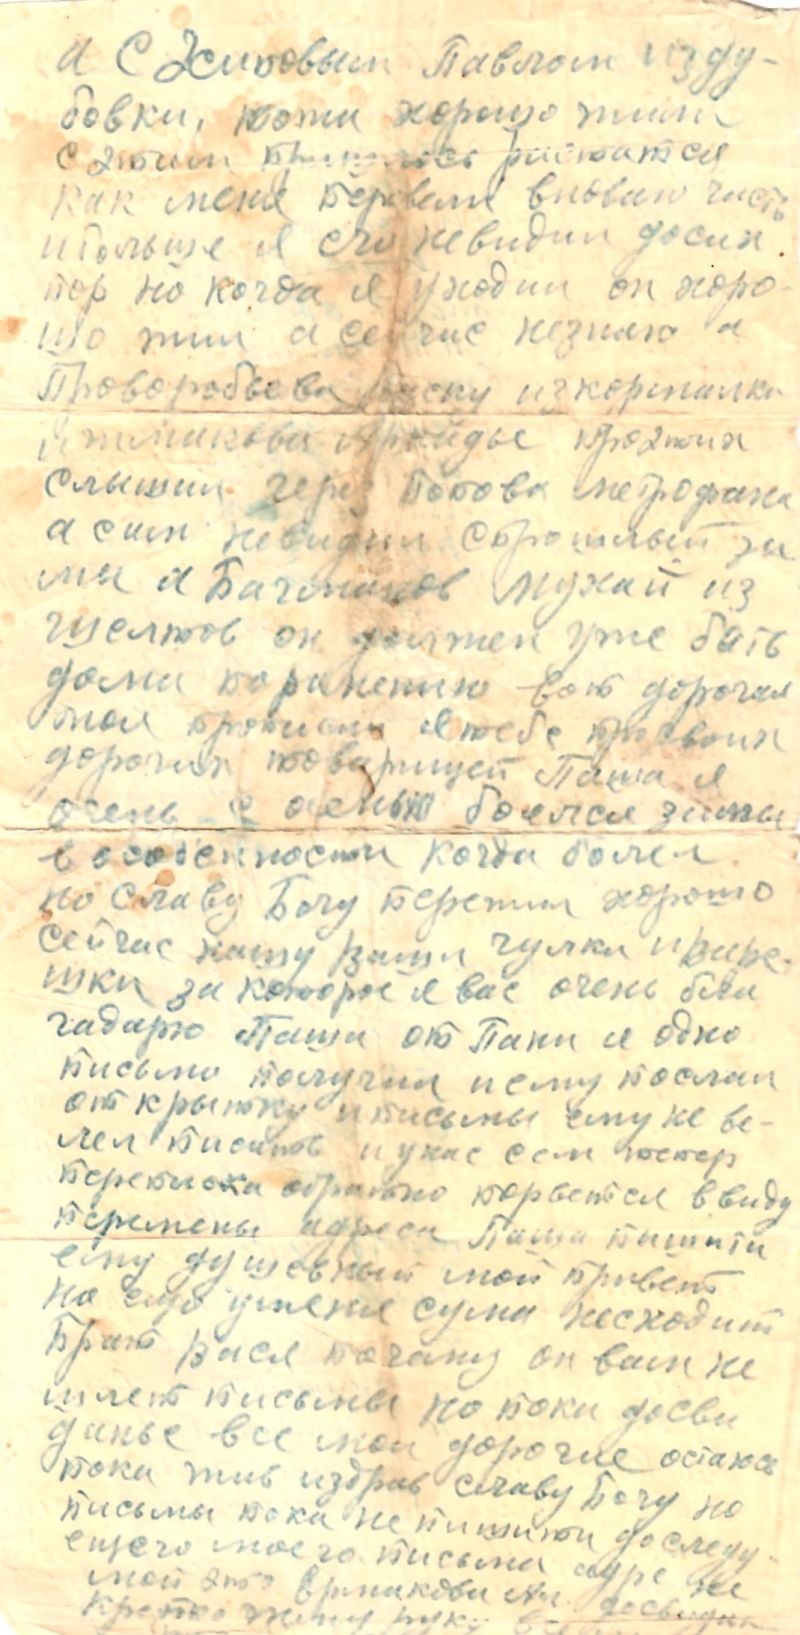 и С Жиповым Павлом из ду-
бовки, тожи хорошо жили
с этим пришлось растатся
как меня перевели в новаю часть
и больше я его невидил досих
пор но когда я уходил он хоро-
шо жил а сейчас незнаю а
Проворобьева Ваську
и про этих
слышил через Попова метрофана
а сам невидил С прошлый зи
мы А Бачманов Михай из
он должен уже бать
дома поранению вот дорогая
моя прописал я тебе просвоих
дорогих товарищей Паша я
очень с осенью боялся зимы
в особенности когда болел
но Славу Богу пережил хорошо
сейчас нашу ваши чулки и варе-
шки за которое я вас очень бла
гадарю Паша от Пани я одно
письмо получил и ему послал
открытку и письмы ему не ве-
лел писать и унас сем тепер
переписка обратно порвется ввиду
перемены адреса Паша пишити
ему душевный мой привет
но ещо уменя сума несходит
брат Вася почаму он вам не
шлет письмы но пока досви
данье все мои дорогие остаюсь
пока жив издрав славу Богу но
письмы пока непишити до следу-
ещего моего письма адре не
мой это Ермакова Ал досвидан
крепко жму руку все